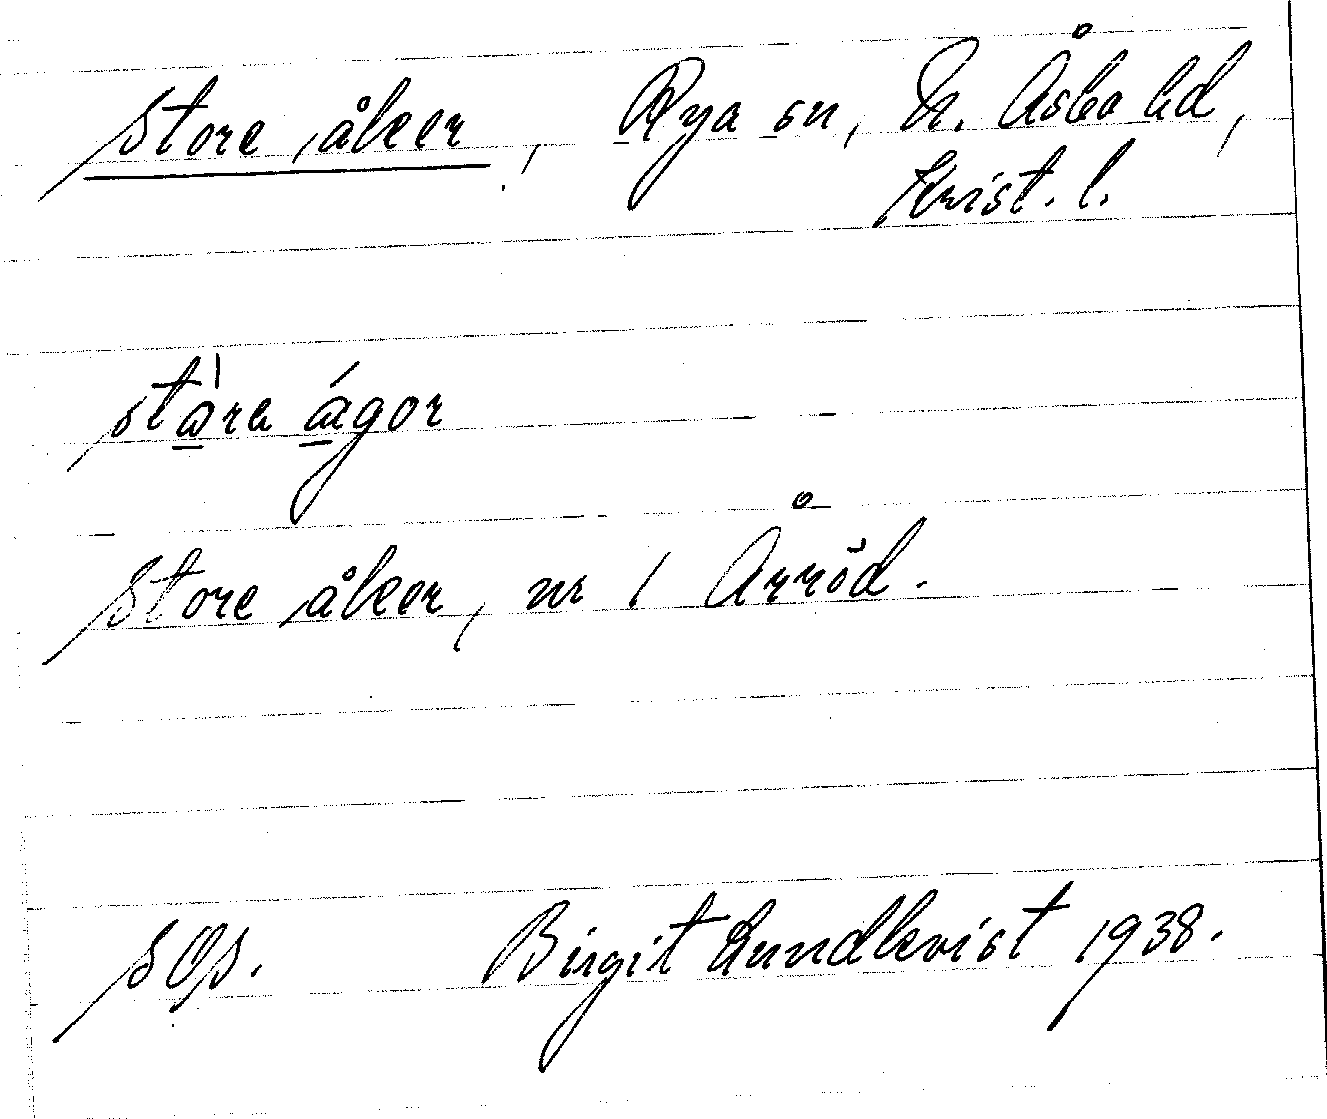 Store åker, Rya sn, N. Åsbo hd,
Krist. l.
stàra ágor
Store åker, nr 1 Årröd.
Birgit Lundkvist 1938.